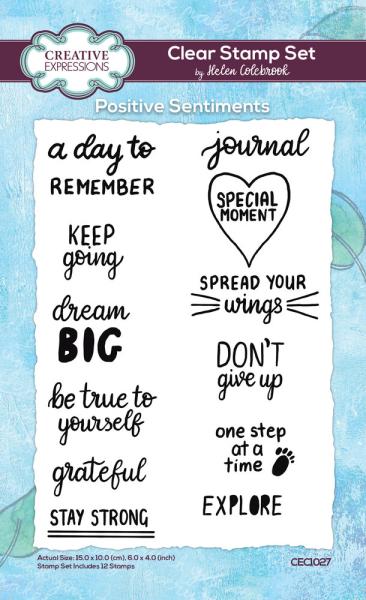 CREATIVE
EXPRESSIONS
Clear Stamp Set
by Helen Colebrook
Positive Sentiments
a day to
REMEMBER
KEEP
going
dream
BIG
be true to
yourself
grateful
STAY STRONG
journal
SPECIAL
MOMENT
SPREAD YOUR
wings
DON'T
give up
one step
at a
time
EXPLORE
Actual Size: 15.0 x 10.0 (cm), 6.0 x 4.0 (inch)
Stamp Set Includes 12 Stamps
CEC1027